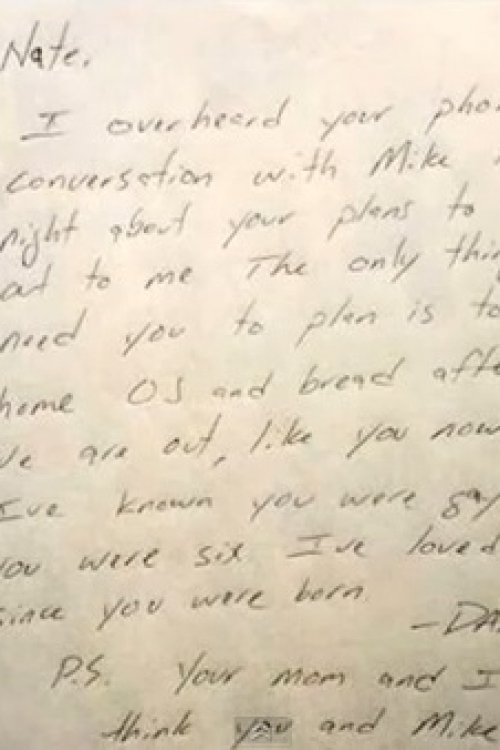 Nate.
I overheard your pho
conversation with Mike
night about your plans to
out to me The only thin
need you to plan is to
home OJ and bread afte
We are out, like you now
I've known you were gay
you were six I've loved
since you were born
-DA
P.S. Your mom and I
think you and Mike